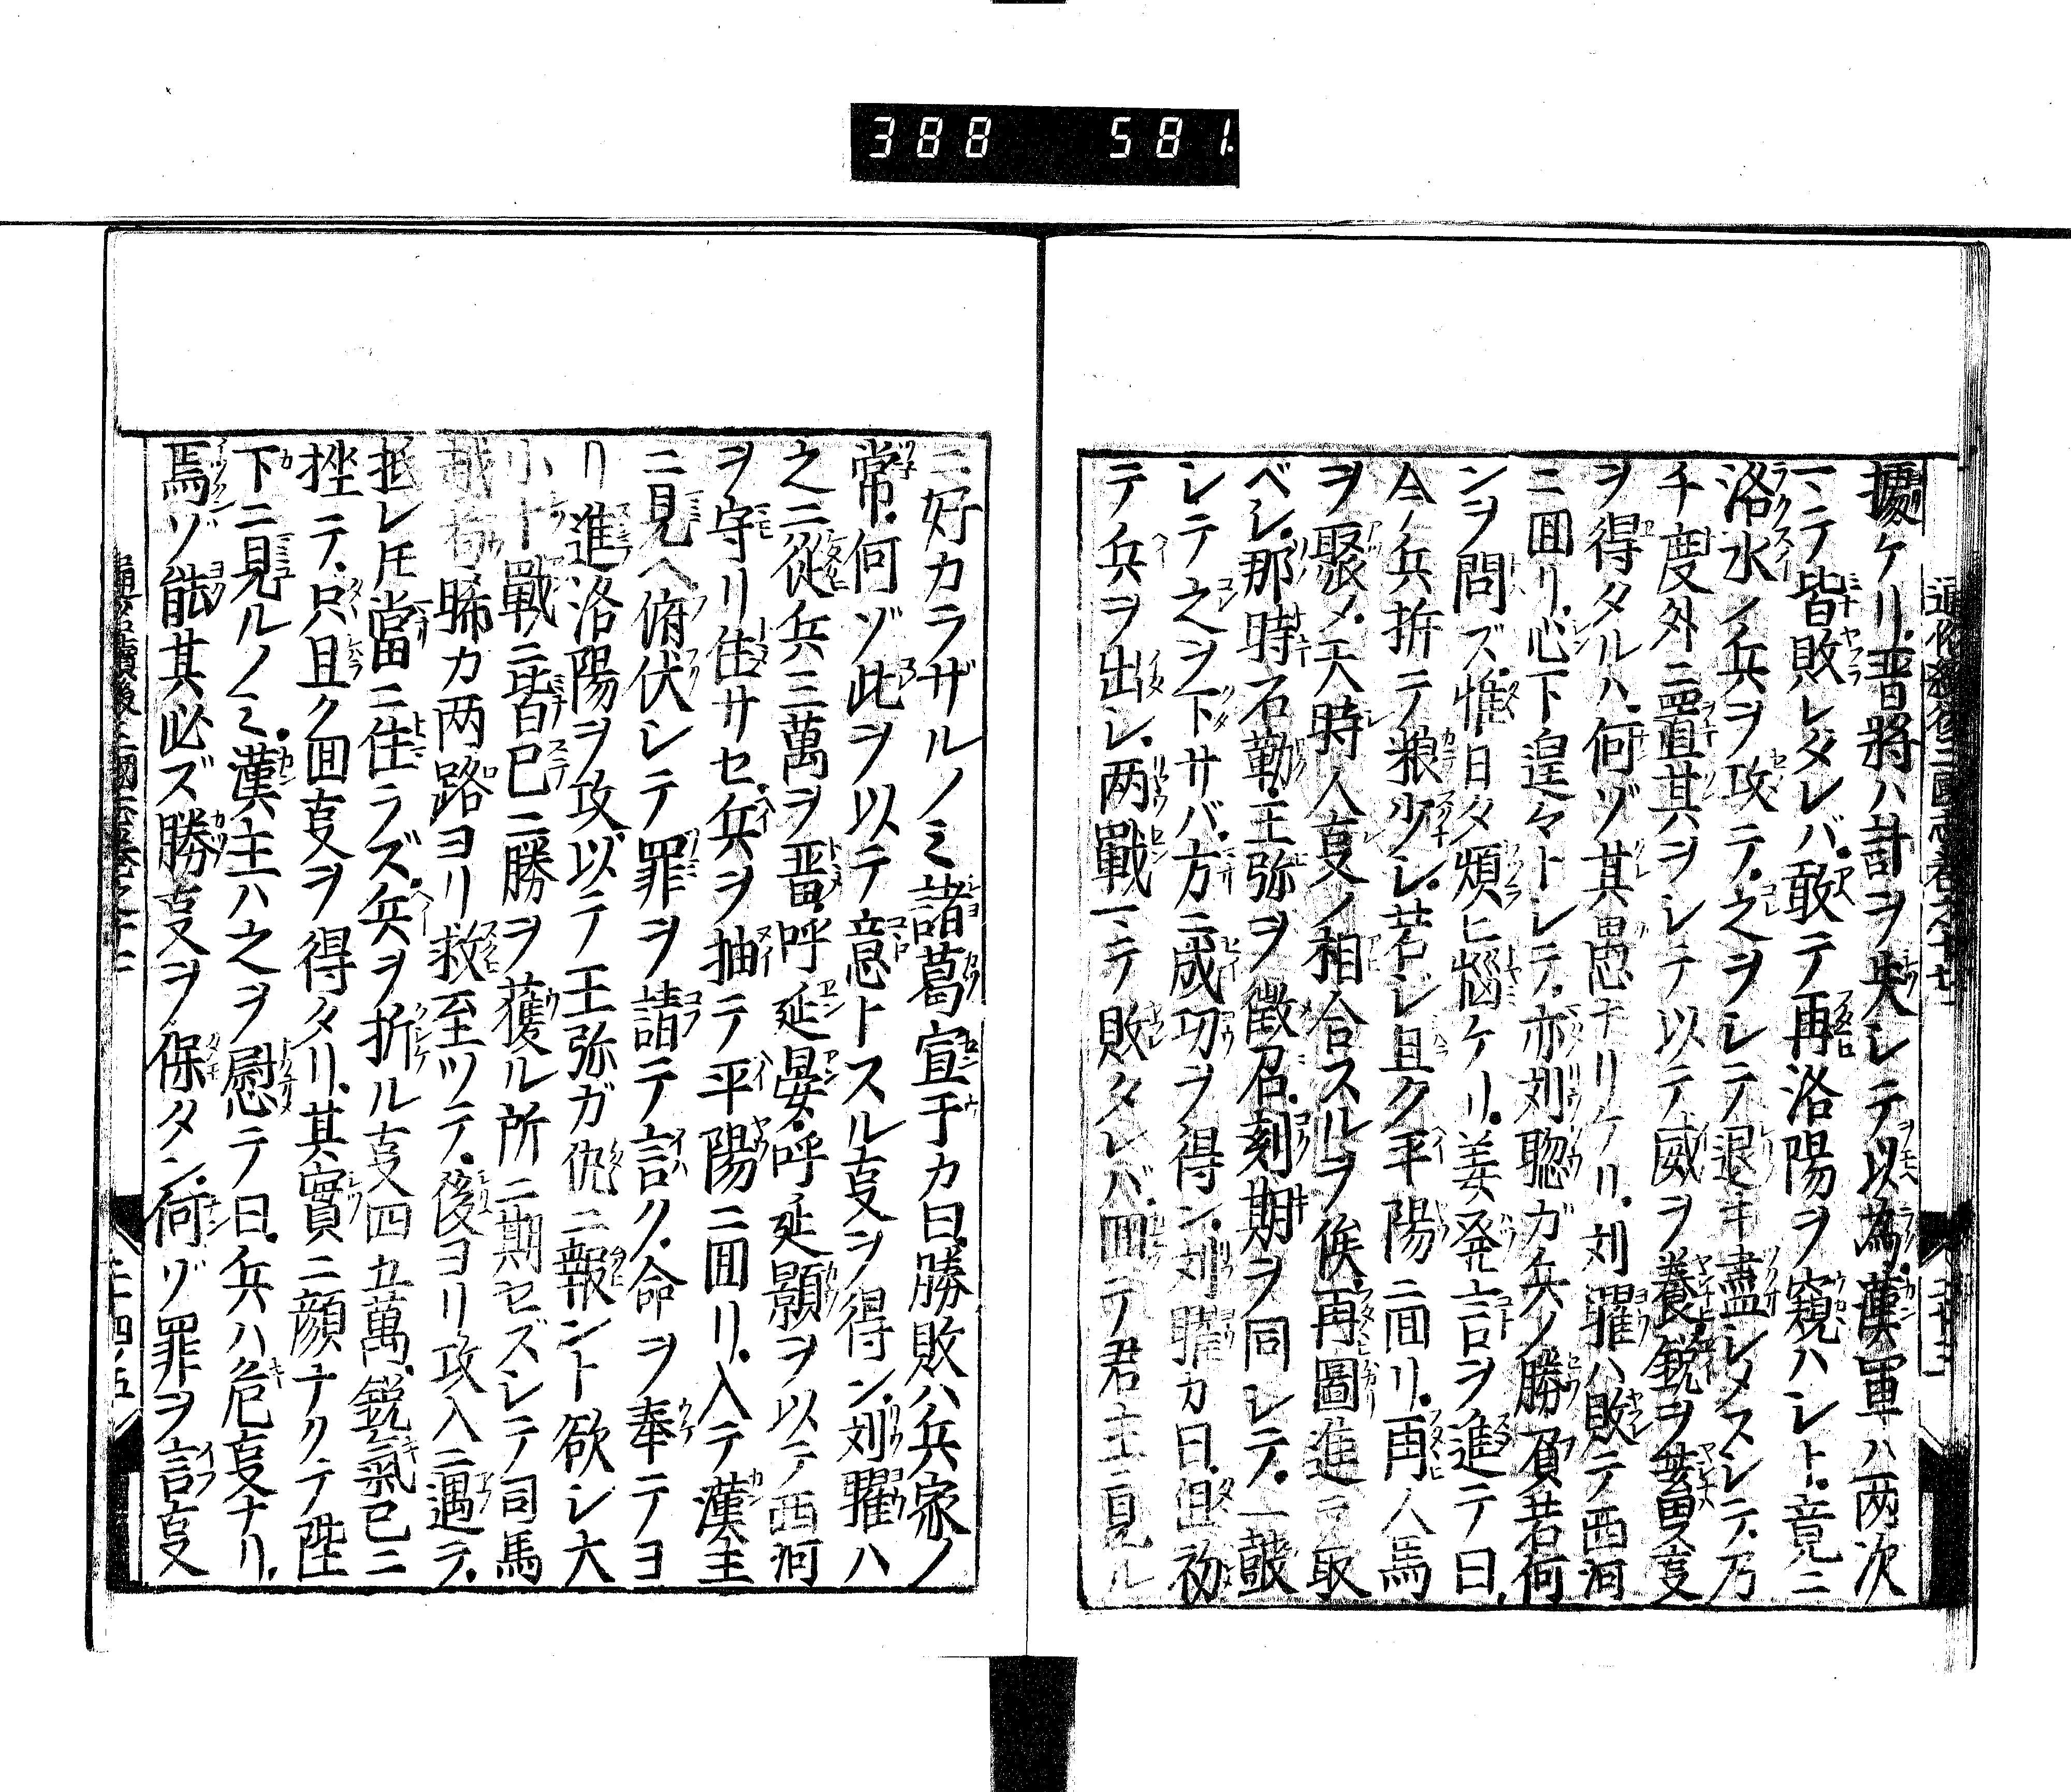 388 581
據ケリ晋將ハ計ヲ失シテ以為漢軍ハ两次
一テ皆敗レタレバ敢テ再洛陽ヲ窺ハシト竟ニ
洛水ノ兵ヲ攻テ之ヲシテ退キ盡シメスシテ乃
チ度外ニ置其ヲシテ以テ威ヲ養鋭ヲ蓄叓
ヲ得タルハ何ゾ其愚ナリケリ刘曜ハ敗テ西河
ニ囬リ心下遑々トシテ亦刘聡ガ兵ノ勝負若何
ンヲ問ズ惟日夕煩ヒ悩ケリ姜発言ヲ進テ曰
今ノ兵折テ粮少シ若シ且ク平陽ニ囬リ再人馬
ヲ聚メ天時人叓ノ相合スルヲ俟再圖進ヲ取
ベシ那時石勒王弥ヲ徴召刻期ヲ同シテ一鼓
シテ之ヲ下サバ方ニ成功ヲ得ン刘曜カ曰俎初
テ兵ヲ出シ两戰一テ敗タレバ囬テ君主ニ見ル
ニ好カラザルノミ諸葛宣于カ曰勝敗ハ兵家ノ
常何ゾ此ヲ以テ意トスル叓ヲ得ン刘曜ハ
之ニ從兵三萬ヲ畱呼延晏呼延顥ヲ以テ西河
ヲ守リ住サセ兵ヲ抽テ平陽ニ囬リ入テ漢主
ニ見ヘ俯伏シテ罪ヲ請テ言ク命ヲ奉テヨ
リ進洛陽ヲ攻以テ王弥ガ仇ニ報ント欲シ大
小十戰ニ皆已ニ勝ヲ獲ル所ニ期セズシテ司馬
越苟晞カ两路ヨリ救至ツテ後ヨリ攻入ニ遇テ
抵シ当當ニ住ラズ兵ヲ折ル叓四五萬鋭氣已ニ
挫テ只且ク囬叓ヲ得タリ其實ニ顔ナクテ陛
下ニ見ルノミ漢主ハ之ヲ慰テ曰兵ハ危叓ナリ
焉ゾ能其必ズ勝叓ヲ保タン何ゾ罪ヲ言叓